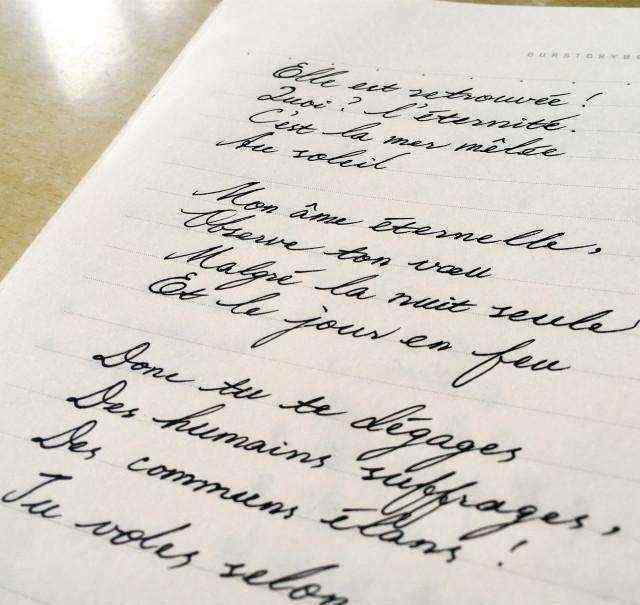 Elle est retrouvée !
Quoi ? l'éternité.
C'est la mer mêlée
Au soleil
Mon âme éternelle,
Observe ton vœu
Malgré la nuit seule
Et le jour en feu
Donc tu te dégages
Des humains suffrages,
Des communs élans !
Tu voles selon